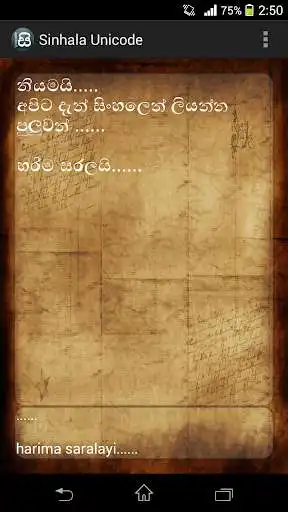 75% 2:50
Sinhala Unicode
නියමයි.....
අපිට දැන් සිංහලෙන් ලියන්න
පුලුවන් ......
හරිම සරලයි......
......
harima saralayi......